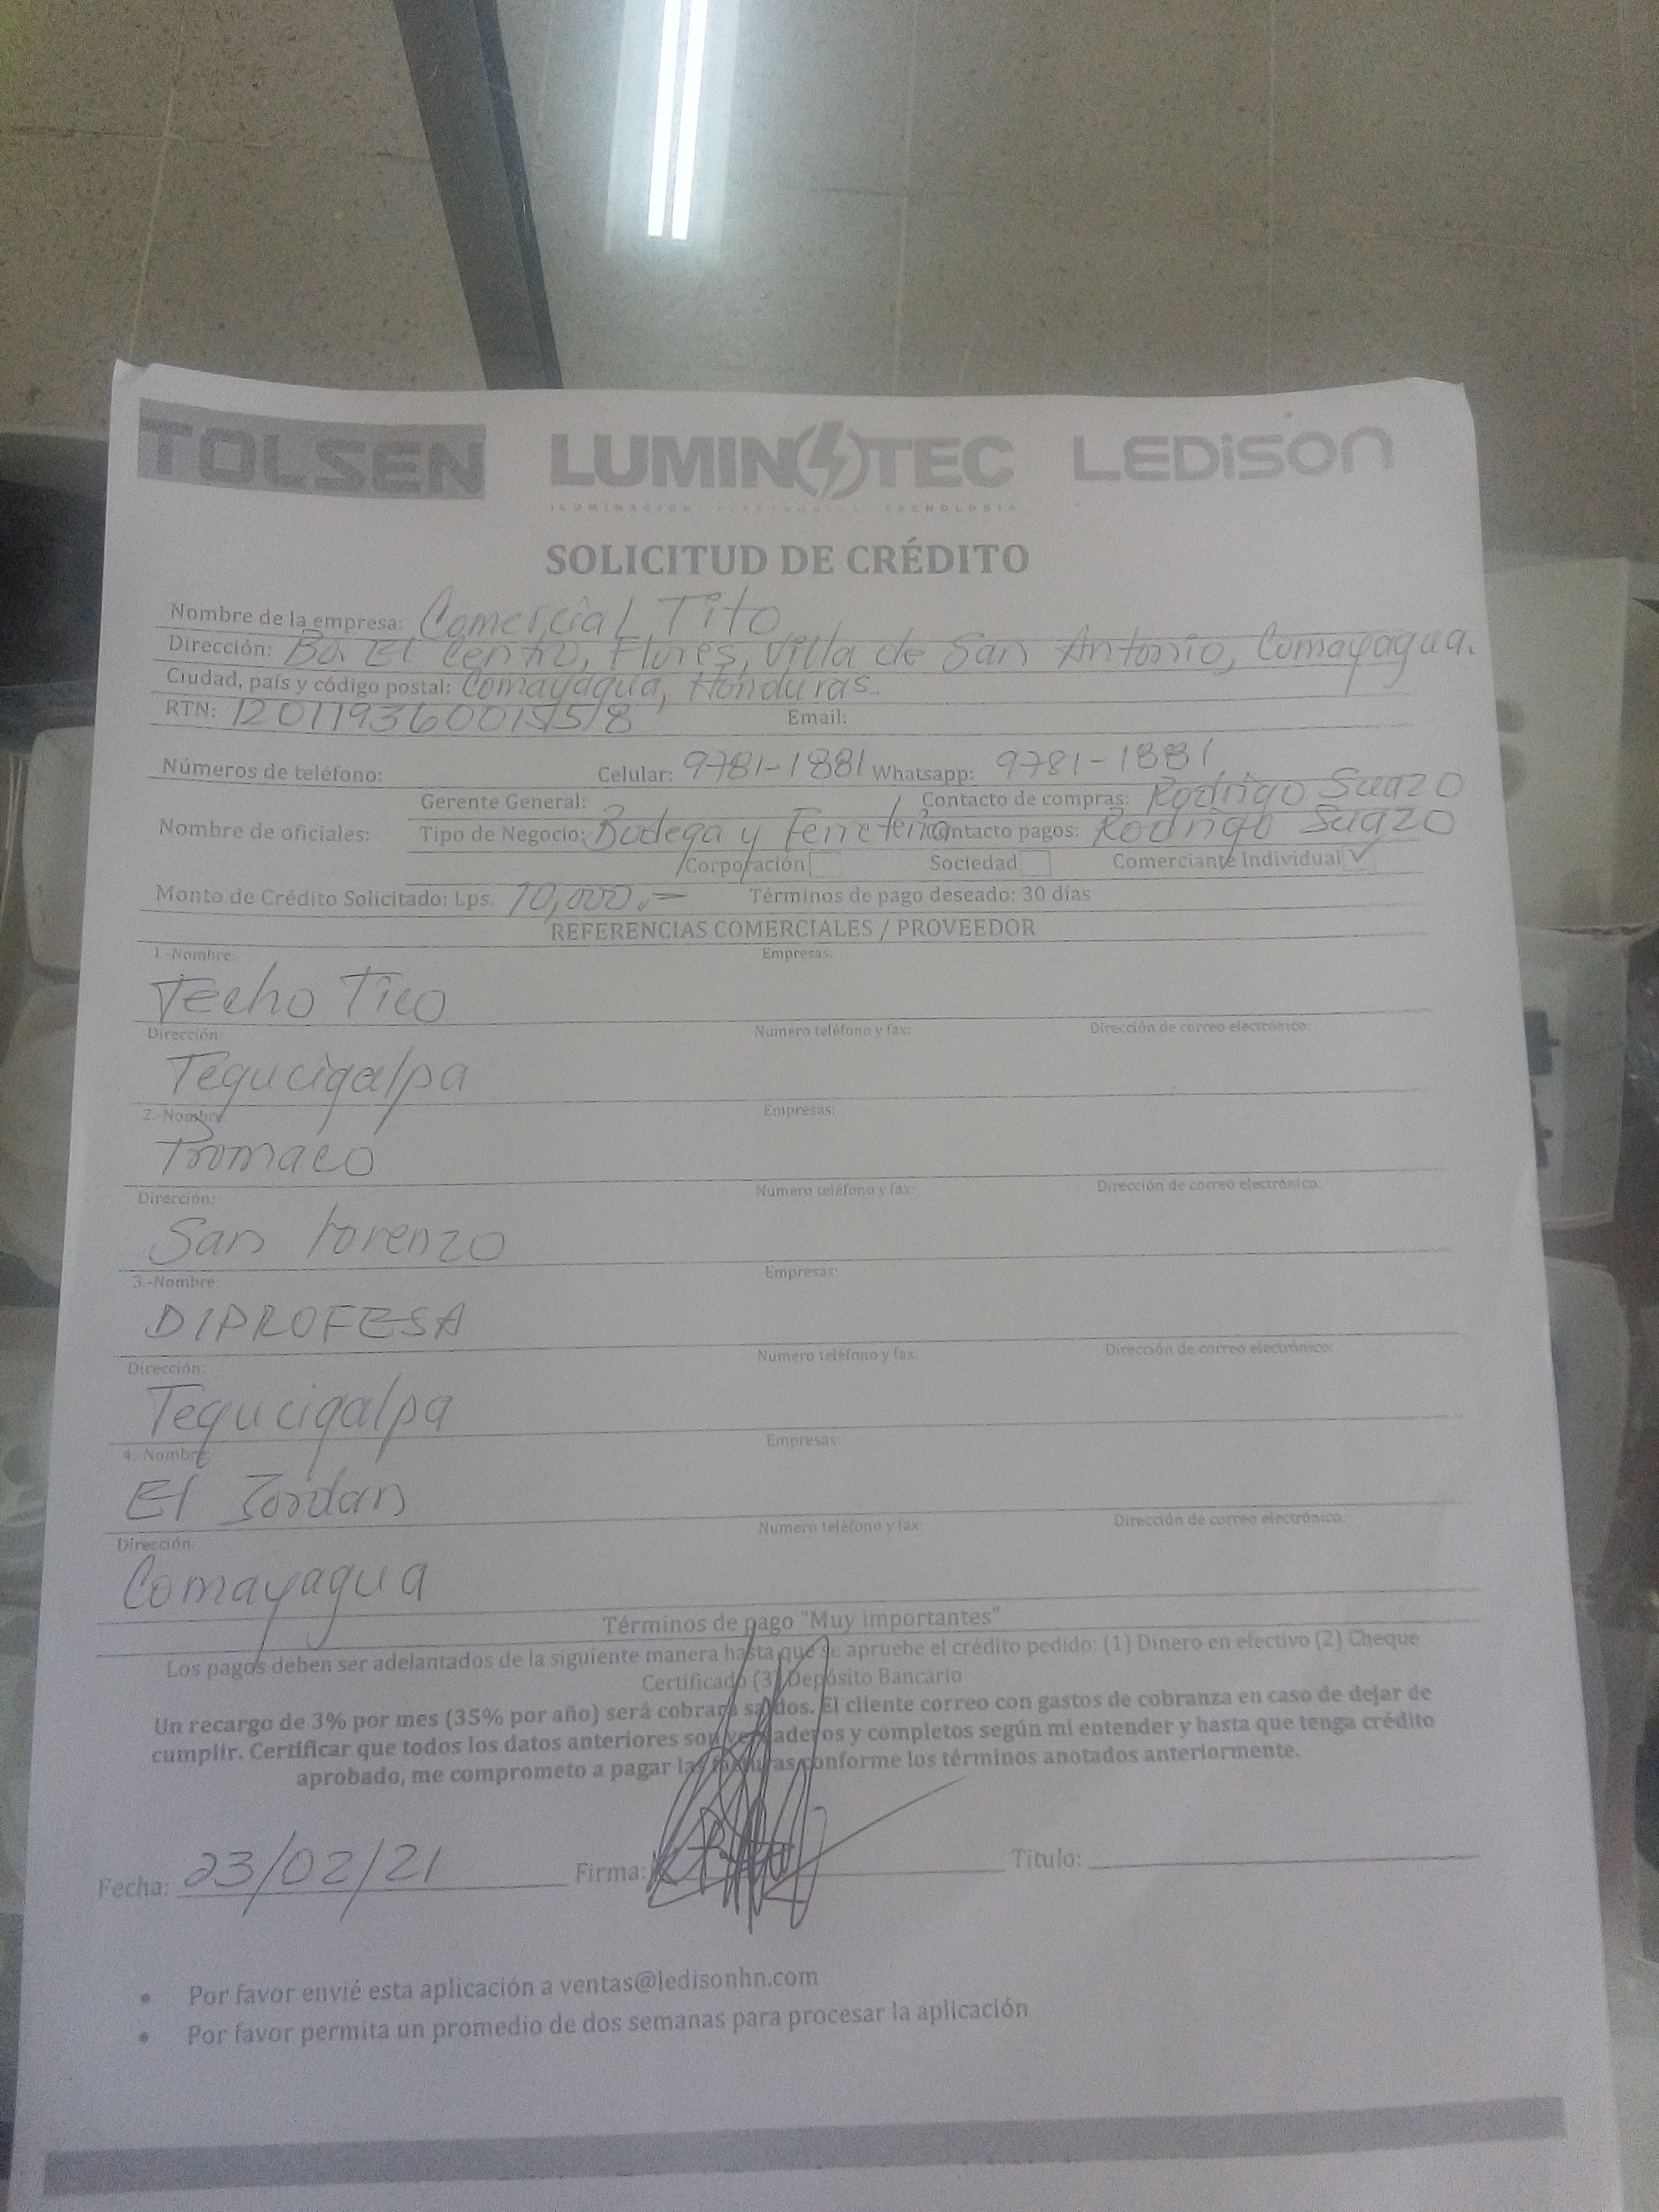 TOLSEN LUMINOTEC LEDISON
ILUMINACION ELECTRONICA TECNOLOGIA
SOLICITUD DE CRÉDITO
Nombre de la empresa: Comercial Tito
Dirección: Bo. El Centro, Flores, Villa de San Antonio, Comayagua.
Ciudad, país y código postal: Comayagua, Honduras.
RTN: Email:
Números de teléfono: Celular: 9781-1881 Whatsapp: 9781-1881
Gerente General: Contacto de compras: Rodrigo Suazo
Nombre de oficiales: Tipo de Negocio: Bodega y Ferreteria Contacto pagos: Rodrigo Suazo
Corporación Sociedad Comerciante Individual ✓
Monto de Crédito Solicitado: Lps. 10,000.= Términos de pago deseado: 30 días
REFERENCIAS COMERCIALES / PROVEEDOR
1.-Nombre: Empresas:
Techo Tico
Dirección: Numero teléfono y fax: Dirección de correo electrónico:
Tegucigalpa
2.-Nombre: Empresas:
Promaco
Dirección: Numero teléfono y fax: Dirección de correo electrónico:
San Lorenzo
3.-Nombre: Empresas:
DIPROFESA
Dirección: Numero teléfono y fax: Dirección de correo electrónico:
Tegucigalpa
4.-Nombre: Empresas:
El Jordan
Dirección: Numero teléfono y fax: Dirección de correo electrónico:
Comayagua
Términos de pago "Muy importantes"
Los pagos deben ser adelantados de la siguiente manera hasta que se apruebe el crédito pedido: (1) Dinero en efectivo (2) Cheque
Certificado (3) Depósito Bancario
Un recargo de 3% por mes (35% por año) será cobrara saldos. El cliente correo con gastos de cobranza en caso de dejar de
cumplir. Certificar que todos los datos anteriores son verdaderos y completos según mi entender y hasta que tenga crédito
aprobado, me comprometo a pagar las facturas conforme los términos anotados anteriormente.
Fecha: 23/02/21 Firma: Titulo:
• Por favor envié esta aplicación a ventas@ledisonhn.com
• Por favor permita un promedio de dos semanas para procesar la aplicación